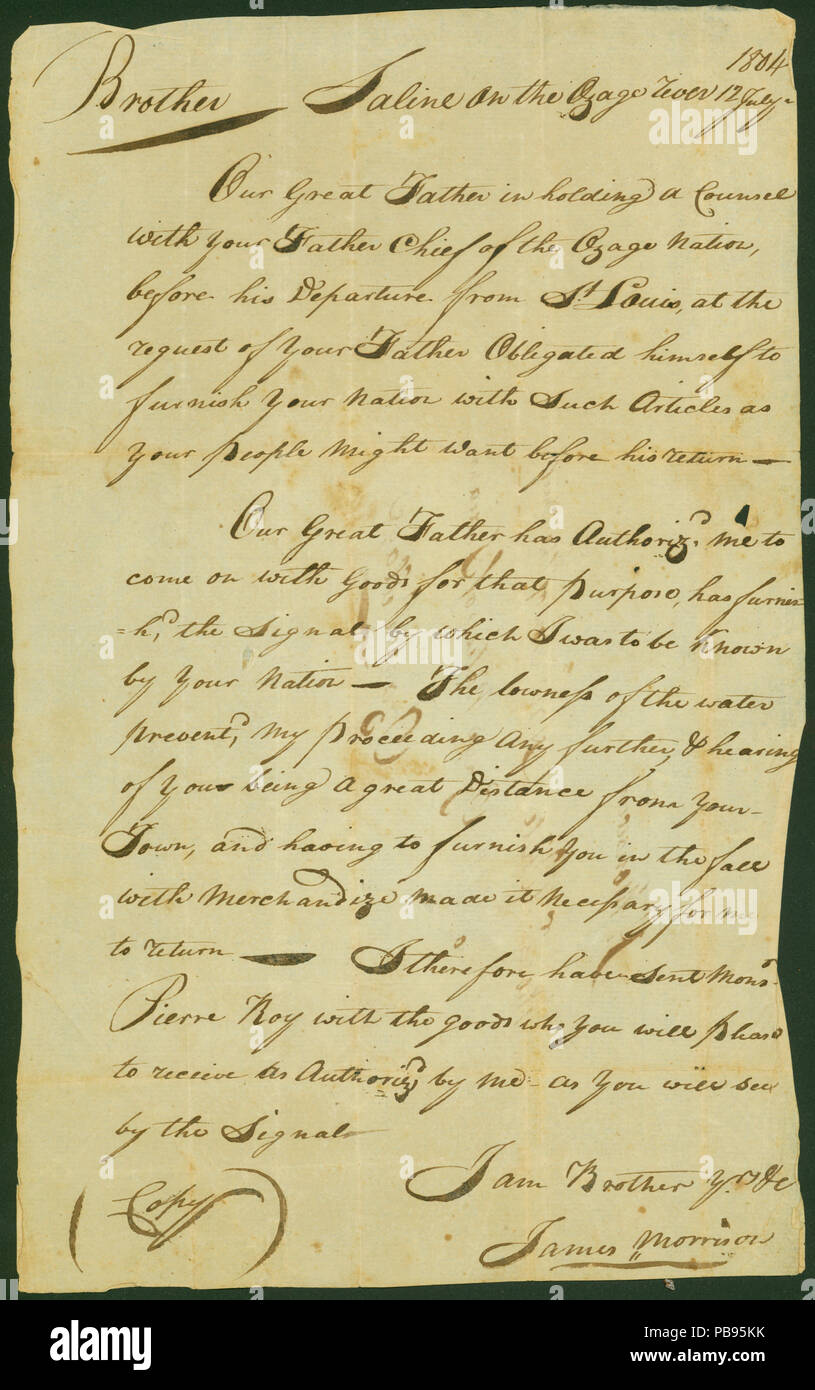 1804
Brother — Saline on the Ozage River 12 July
Our Great Father in holding a Counsel
with your Father Chief of the Ozage Nation,
before his Departure from St. Louis, at the
request of your Father Obligated himself to
furnish your Nation with Such Articles as
your people Might want before his return —
Our Great Father has Authoriz,d me to
come on with Goods for that purpose, has furnis=
=h,d the Signal by which I was to be known
by your Nation — The lowness of the water
prevent,d My proceeding Any further, & hearing
of you being a great Distance from your
Town, and having to furnish you in the fall
with Merchandize made it Necessary for me
to return — I therefore have sent Mons.r
Pierre Roy with the goods who you will please
to receive as Authoriz,d by me as you will see
by the Signal
I am Brother yrs &c
(Copy)
James Morrison
alamy
alamy
Image ID: PB95KK
www.alamy.com